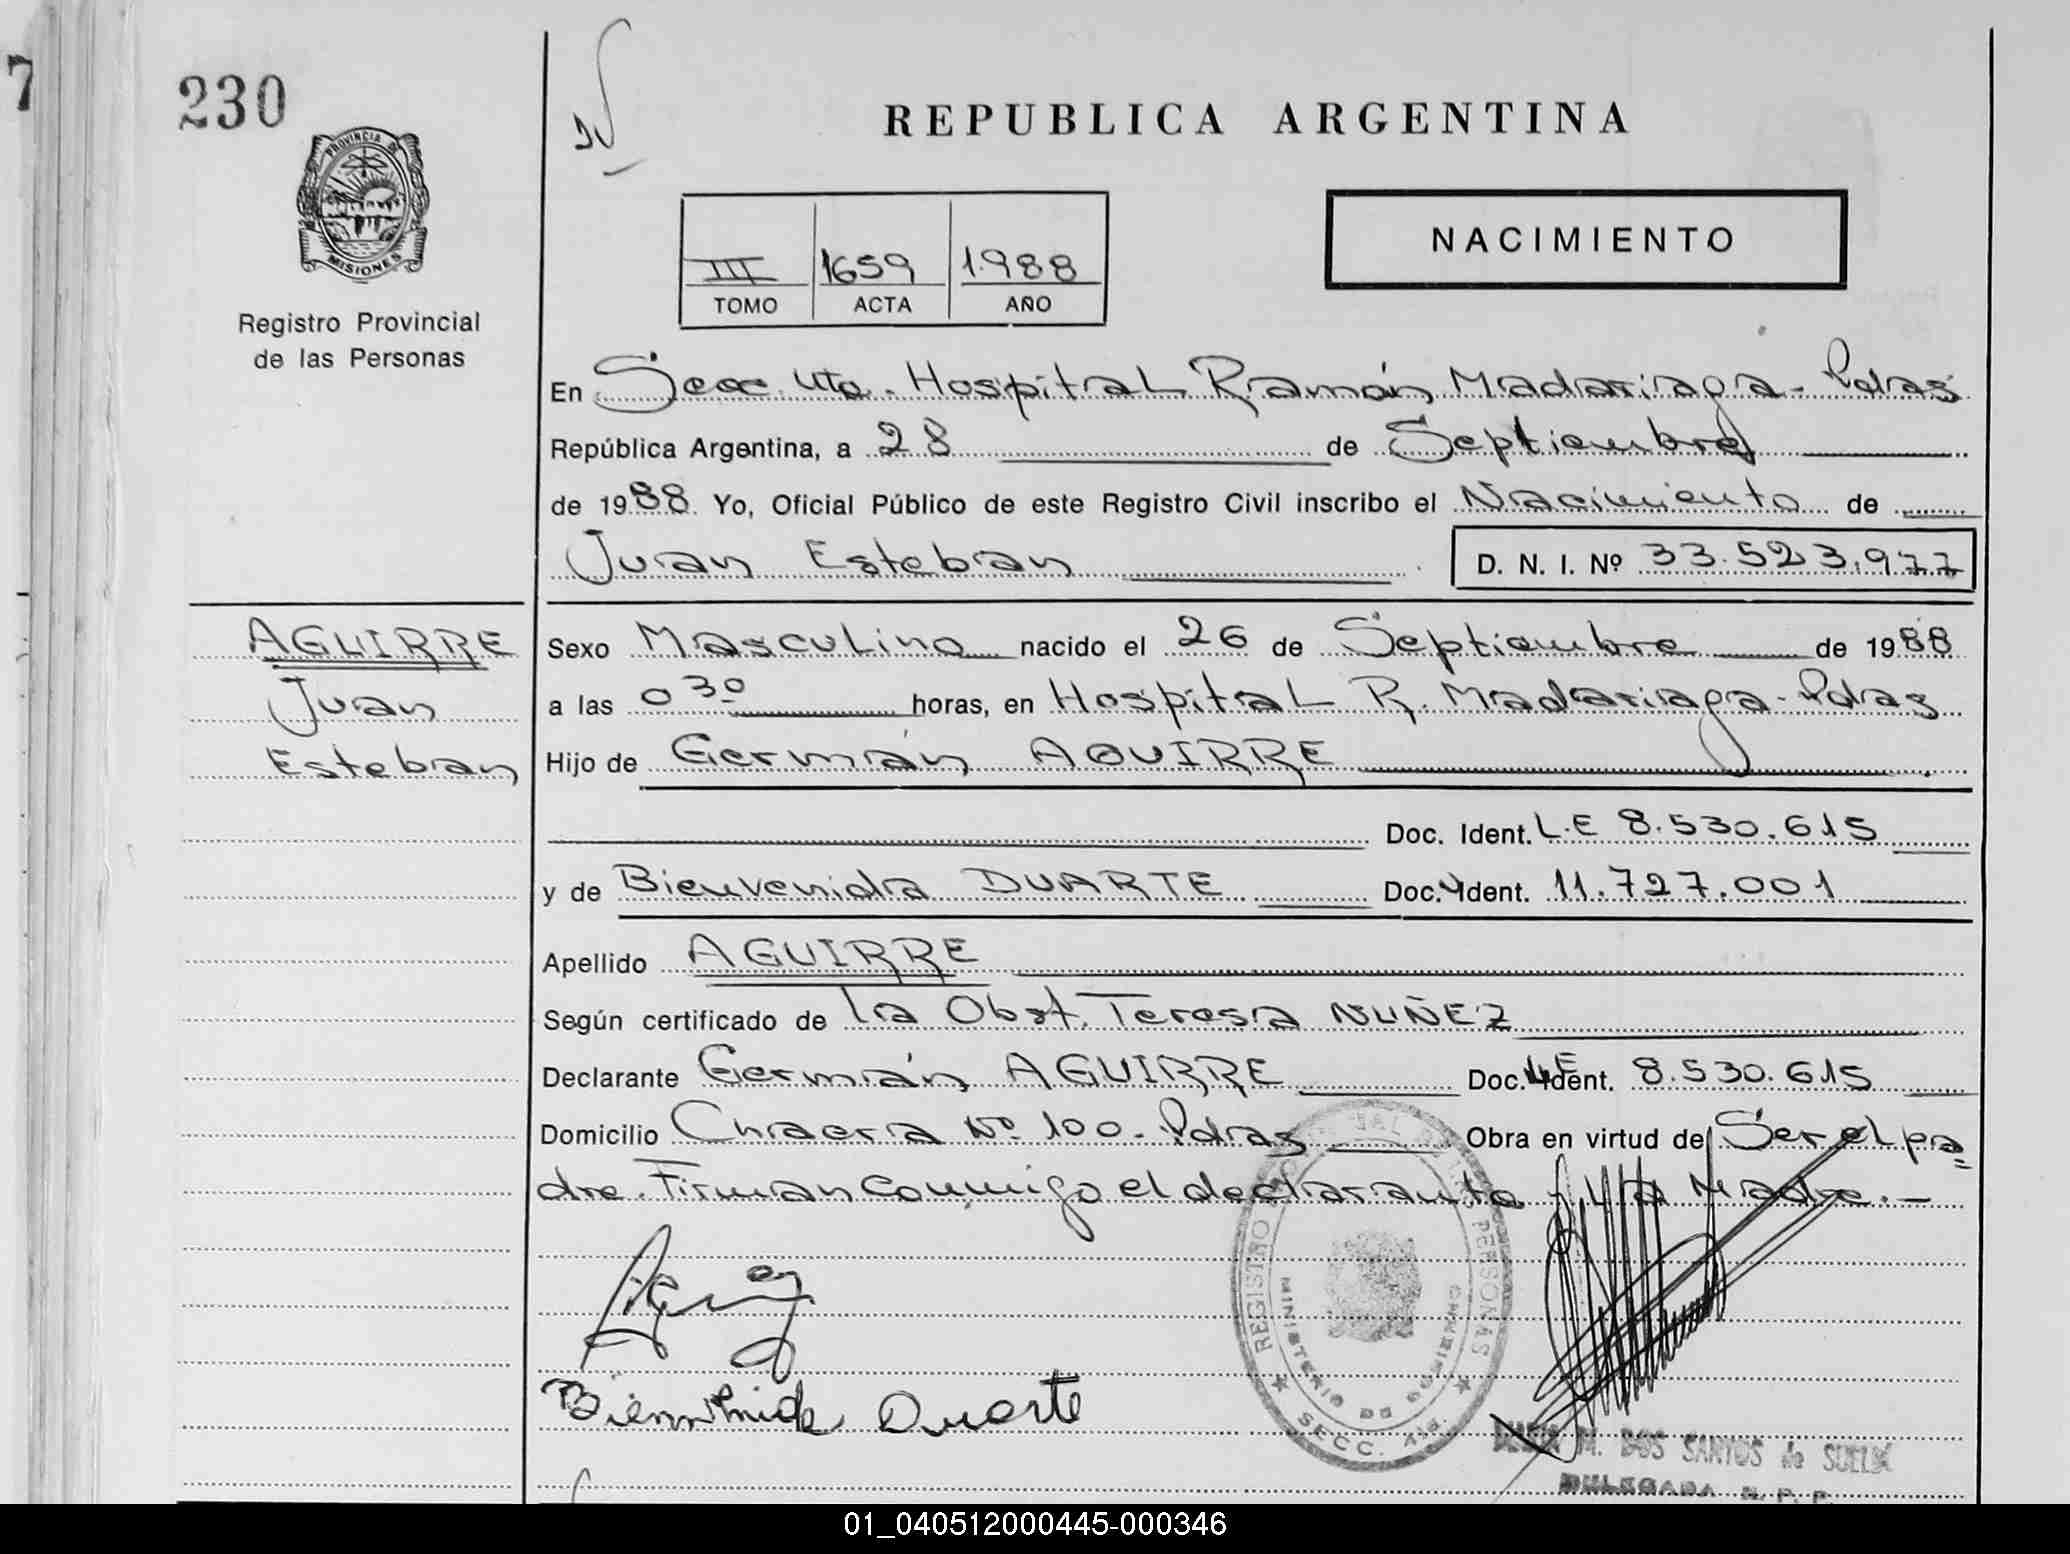 7
230
PROVINCIA DE
MISIONES
Registro Provincial
de las Personas
REPUBLICA ARGENTINA
III 1659 1.988
TOMO ACTA AÑO
NACIMIENTO
En Secc. 4ta. Hospital Ramón Madariaga - Pdas
República Argentina, a 28 de Septiembre
de 1988 Yo, Oficial Público de este Registro Civil inscribo el Nacimiento de
Juan Esteban D. N. I. Nº 33.523.977
AGUIRRE
Juan
Esteban
Sexo Masculino nacido el 26 de Septiembre de 1988
a las 0 30 horas, en Hospital R. Madariaga - Pdas
Hijo de Germán AGUIRRE
Doc. Ident. L.E 8.530.615
y de Bienvenida DUARTE Doc. Ident. 11.727.001
Apellido AGUIRRE
Según certificado de la Obst. Teresa NUÑEZ
Declarante Germán AGUIRRE Doc. Ident. LE 8.530.615
Domicilio Chacra Nº 100 - Pdas Obra en virtud de Ser el pa=
dre. Firman conmigo el declarante y la Madre. -
Duarte
REGISTRO PERSONAS
MINISTERIO DE GOBIERNO
SECC. 4ta.
M. DOS SANTOS de
DELEGADA R. P. P.
01_040512000445-000346